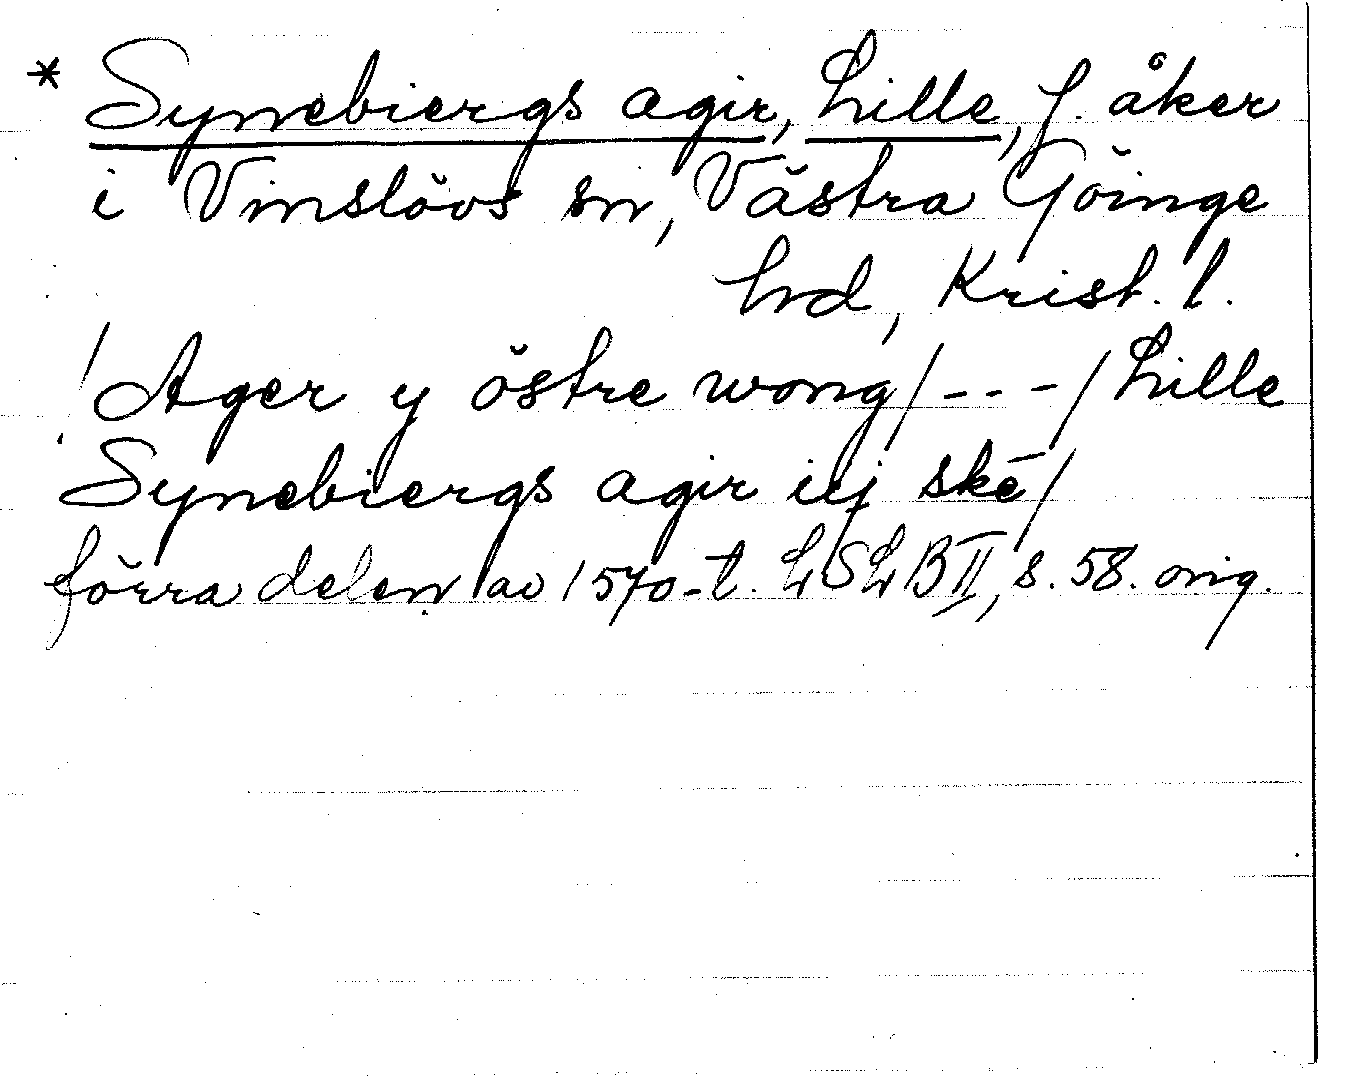 * Synebiergs agir, Lille, f. åker
i Vinslövs sn, Västra Göinge
hd, Krist. l.
/Ager y östre wong/---/Lille
Synebiergs agir iij skē/
förra delen av 1570-t. LSLB II, s. 58. orig.